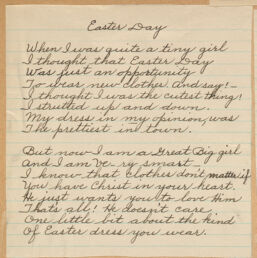 Easter Day
When I was quite a tiny girl
I thought that Easter Day
Was just an opportunity
To wear new clothes And say! -
I thought I was the cutest thing!
I strutted up and down.
My dress in my opinion, was
The prettiest in town.
But now I am a Great Big girl
And I am Ve-ry smart
I know that clothes don't matter if
You have Christ in your heart.
He just wants you to love Him
Thats all! He doesn't care
One little bit about the kind
Of Easter dress you wear.